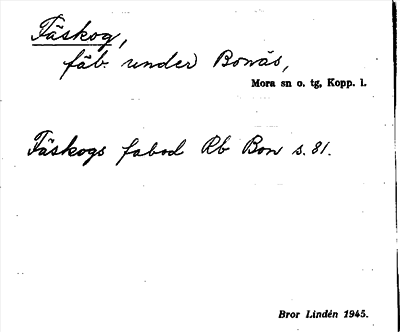 Fäskog,
fäb. under Bonäs,
Mora sn o. tg, Kopp. l.
Fäskogs fabod Rb Bon s. 81.
Bror Lindén 1945.